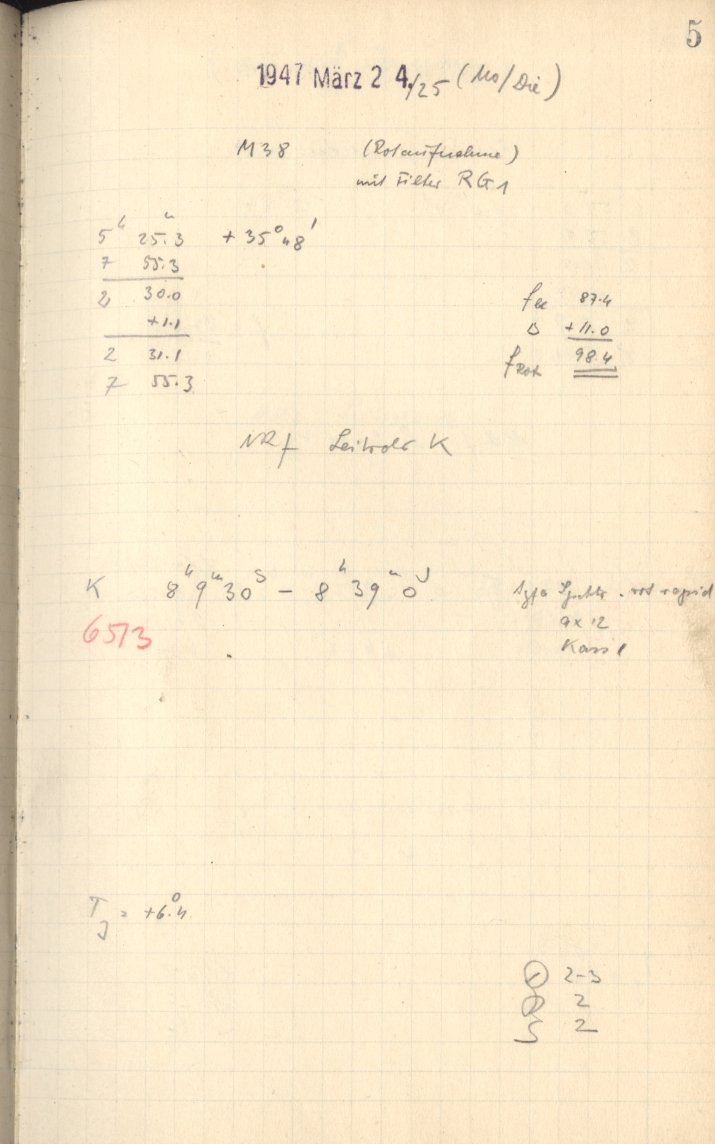 5
1947 März 24./25 (Mo/Die)
M38 (Rotaufnahme)
mit Filter RG1
5h 25m.3 +35°48'
7 55.3
2 30.0
+1.1
2 31.1
7 55.3
87.4
Δ +11.0
fRot 98.4
K
K 8h 9m 30s – 8h 39m 0s
Agfa rot rapid
9x12
6573
T = +6°.4
2-3
2
S 2